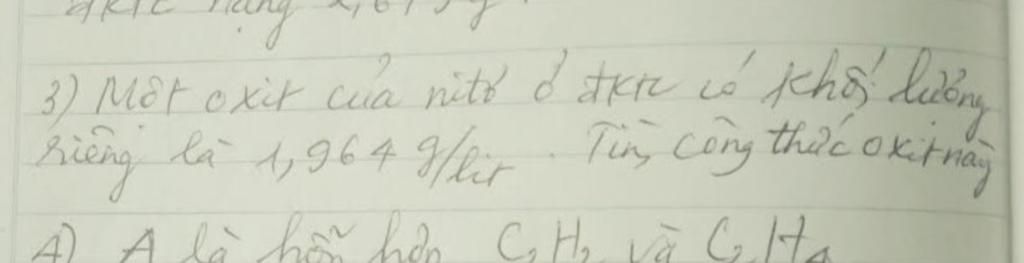 đktc nặng
3) Một oxit của nitơ ở đktc có khối lượng
riêng là 1,964 g/lit. Tìm công thức oxit này
4) A là hỗn hợp C2H2 và C2H4